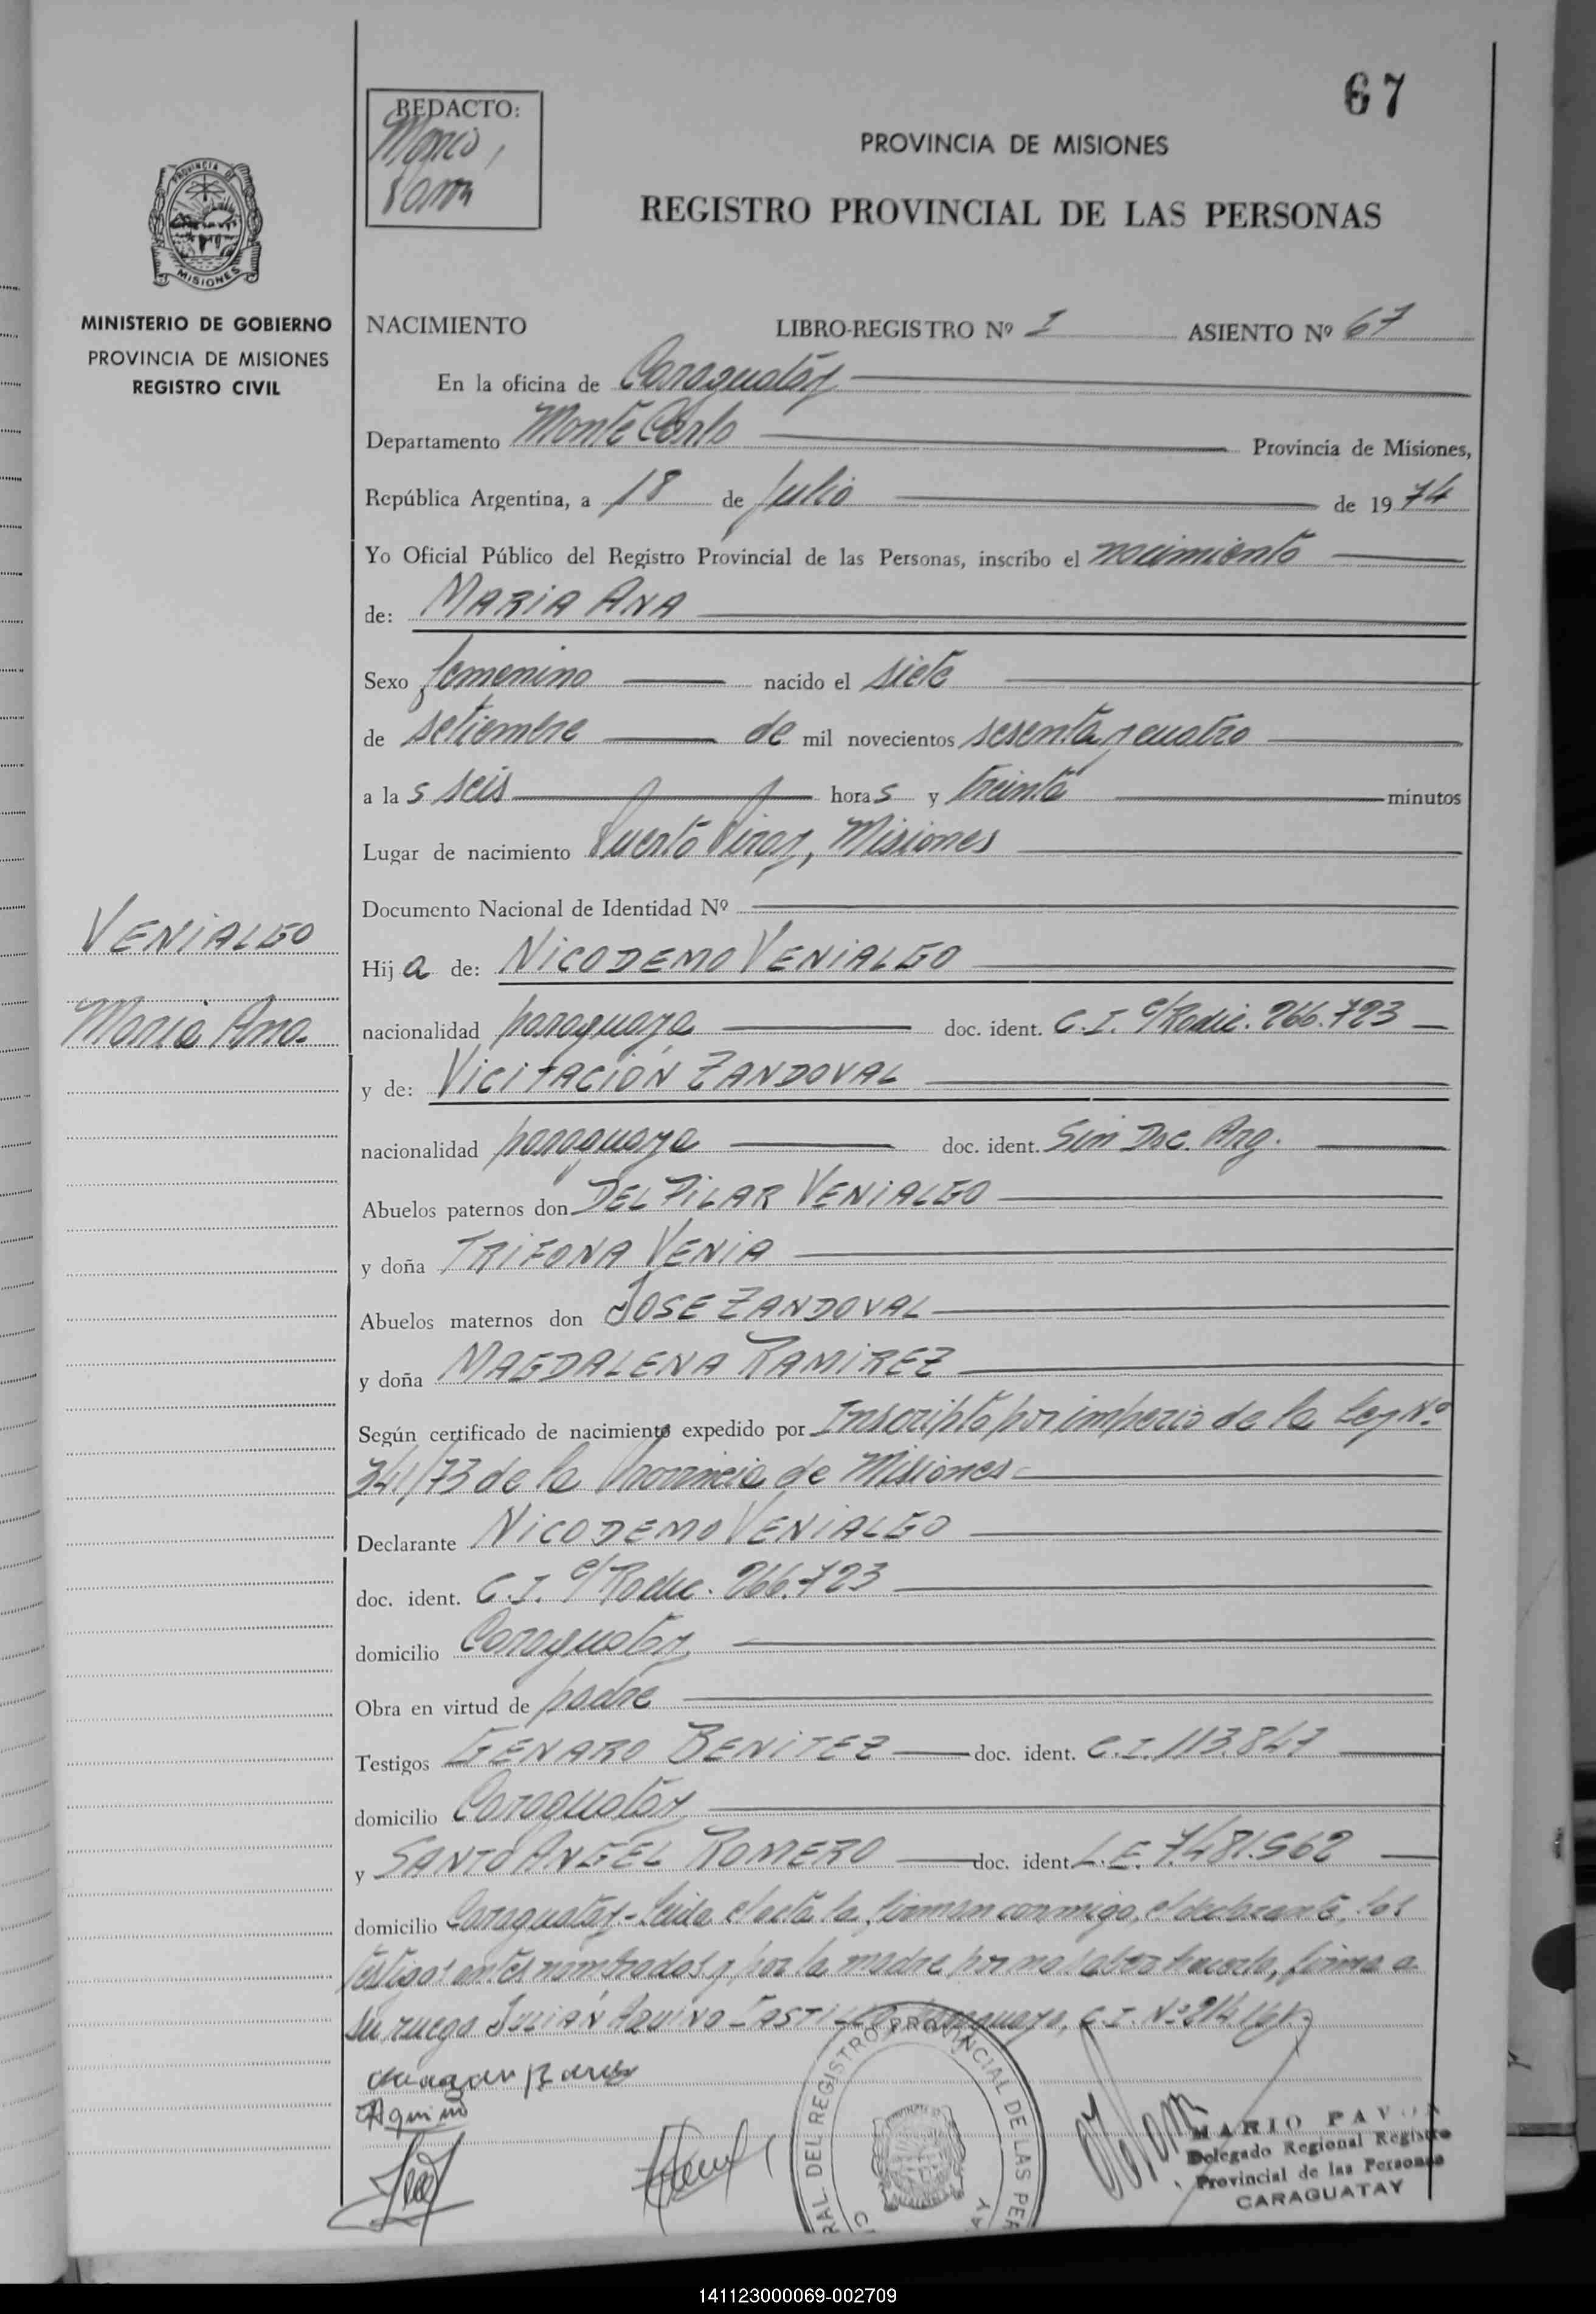 67
REDACTO:
Mario
Pavon
PROVINCIA DE MISIONES
REGISTRO PROVINCIAL DE LAS PERSONAS
PROVINCIA DE
MISIONES
MINISTERIO DE GOBIERNO
PROVINCIA DE MISIONES
REGISTRO CIVIL
NACIMIENTO LIBRO-REGISTRO Nº I ASIENTO Nº 67
En la oficina de Caraguatay
Departamento Monte Carlo Provincia de Misiones,
República Argentina, a 18 de Julio de 1974
Yo Oficial Público del Registro Provincial de las Personas, inscribo el nacimiento
de: MARIA ANA
Sexo femenino nacido el siete
de setiembre de mil novecientos sesenta y cuatro
a las seis horas y treinta minutos
Lugar de nacimiento Puerto Piray, Misiones
Documento Nacional de Identidad Nº
VENIALGO
Maria Ana.
Hija de: NICODEMO VENIALGO
nacionalidad paraguaya doc. ident. C.I. c/Radic. 266.723
y de: VICITACIÓN ZANDOVAL
nacionalidad paraguaya doc. ident. Sin Doc. Arg.
Abuelos paternos don DEL PILAR VENIALGO
y doña TRIFONA VENIA
Abuelos maternos don JOSE ZANDOVAL
y doña MAGDALENA RAMIREZ
Según certificado de nacimiento expedido por Inscripto por imperio de la Ley Nº
341/73 de la Provincia de Misiones
Declarante NICODEMO VENIALGO
doc. ident. C.I. c/Radic. 266.723
domicilio Caraguatay
Obra en virtud de padre
Testigos GENARO BENITEZ doc. ident. C.I. 113.847
domicilio Caraguatay
y SANTO ANGEL ROMERO doc. ident. L.E. 7.481.562
domicilio Caraguatay - Leida el acta la firman conmigo, el declarante, los
testigos antes nombrados y por la madre por no saber hacerlo, firma a
su ruego JULIÁN AQUINO CASTILLO, paraguayo, C.I. Nº
Aquino
REGISTRO PROVINCIAL DE LAS PER
MARIO PAVON
Delegado Regional Registro
Provincial de las Personas
CARAGUATAY
141123000069-002709